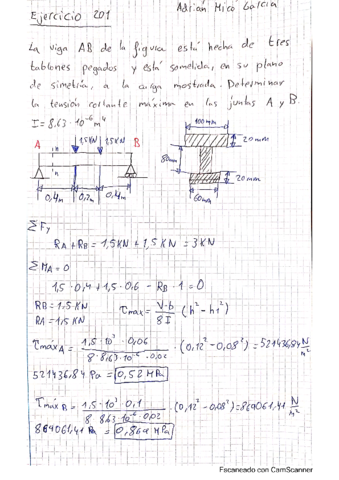 Ejercicio 201
Adrián Micó García
La viga AB de la figura está hecha de tres
tablones pegados y está sometida, en su plano
de simetría, a la carga mostrada. Determinar
la tensión cortante máxima en las juntas A y B.
I = 8,63·10⁻⁶ m⁴
1,5KN 1,5KN
A B
n
n
0,4m 0,2m 0,4m
100mm
20mm
80mm
20mm
60mm
ΣFy
RA + RB = 1,5KN + 1,5KN = 3KN
ΣMA = 0
1,5·0,4 + 1,5·0,6 - RB·1 = 0
RB = 1,5KN
RA = 1,5KN
τmáx = V·b / 8I (h² - h1²)
τmáxA = 1,5·10³·0,06 / 8·8,63·10⁻⁶·0,02 · (0,12² - 0,08²) = 521436,84 N/m²
521436,84 Pa = 0,52 MPa
τmáxB = 1,5·10³·0,1 / 8·8,63·10⁻⁶·0,02 · (0,12² - 0,08²) = 869061,41 N/m²
869061,41 Pa = 0,869 MPa
Escaneado con CamScanner